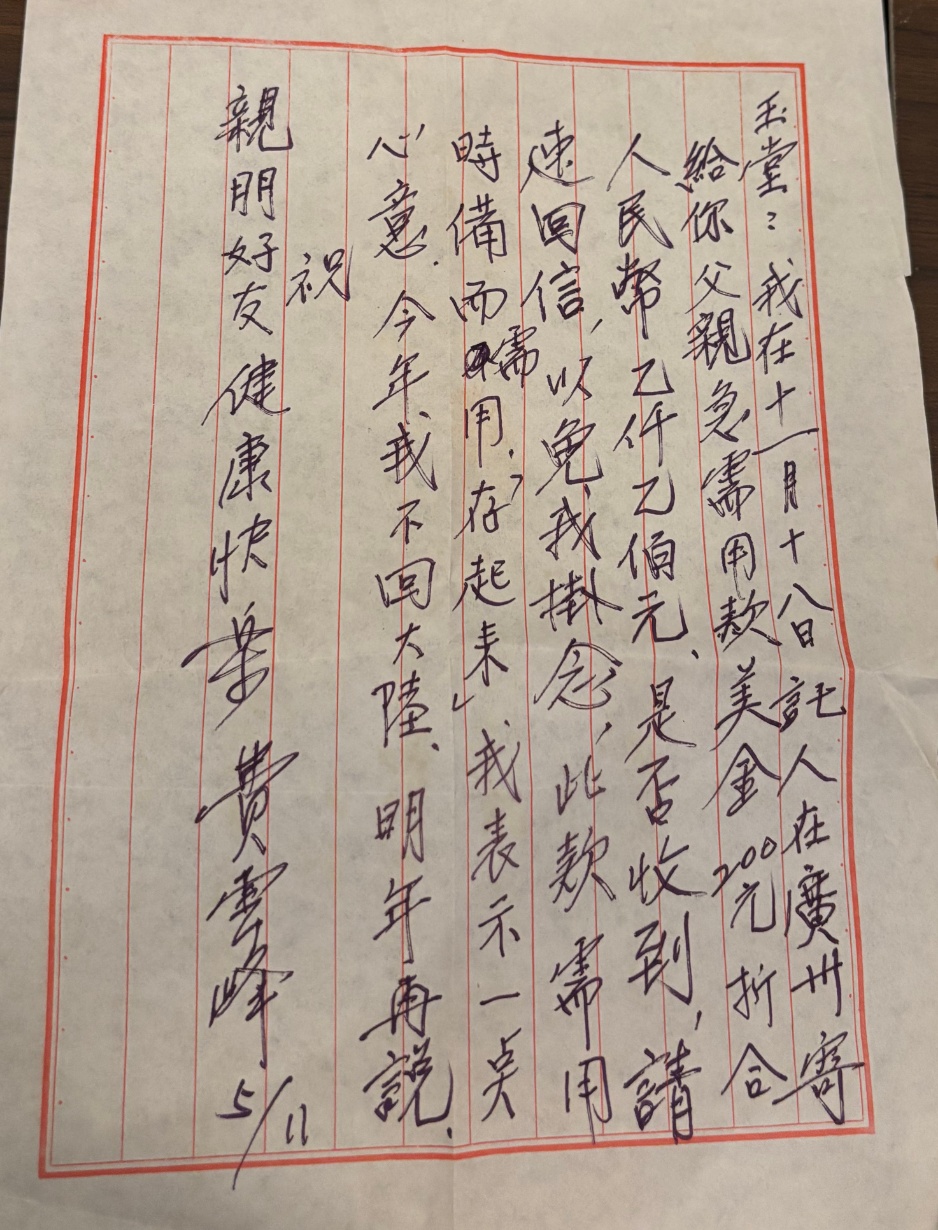 玉堂：我在十一月十八日託人在廣州寄
給你父親急需用款美金200元折合
人民幣乙仟乙佰元、是否收到，請
速回信，以免我掛念，此款需用
時備而需用.「存起来」我表示一点
心意.今年我不回大陸、明年再說.
祝
親朋好友健康快樂 費雲峰 5/11